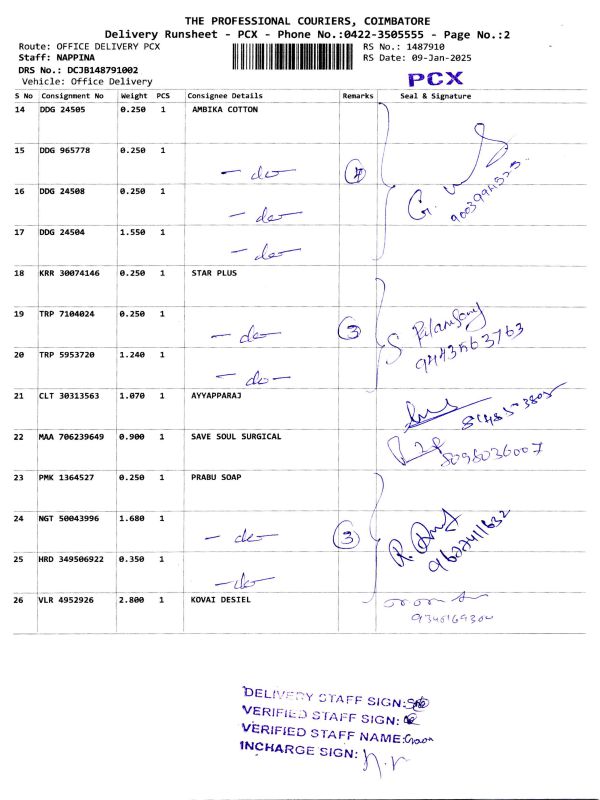 THE PROFESSIONAL COURIERS, COIMBATORE
Delivery Runsheet - PCX - Phone No.:0422-3505555 - Page No.:2
Route: OFFICE DELIVERY PCX
RS No.: 1487910
Staff: NAPPINA
RS Date: 09-Jan-2025
DRS No.: DCJB148791002
Vehicle: Office Delivery
PCX
S No Consignment No Weight PCS Consignee Details Remarks Seal & Signature
14 DDG 24505 0.250 1 AMBIKA COTTON
15 DDG 965778 0.250 1
- do - 4
16 DDG 24508 0.250 1
- do -
17 DDG 24504 1.550 1
- do -
18 KRR 30074146 0.250 1 STAR PLUS
19 TRP 7104024 0.250 1
- do - 3
9443563763
20 TRP 5953720 1.240 1
- do -
21 CLT 30313563 1.070 1 AYYAPPARAJ
22 MAA 706239649 0.900 1 SAVE SOUL SURGICAL
8098036007
23 PMK 1364527 0.250 1 PRABU SOAP
24 NGT 50043996 1.680 1
- do - 3
9602411632
25 HRD 349506922 0.350 1
- do -
26 VLR 4952926 2.800 1 KOVAI DESIEL
DELIVERY STAFF SIGN:
VERIFIED STAFF SIGN:
VERIFIED STAFF NAME:
INCHARGE SIGN: